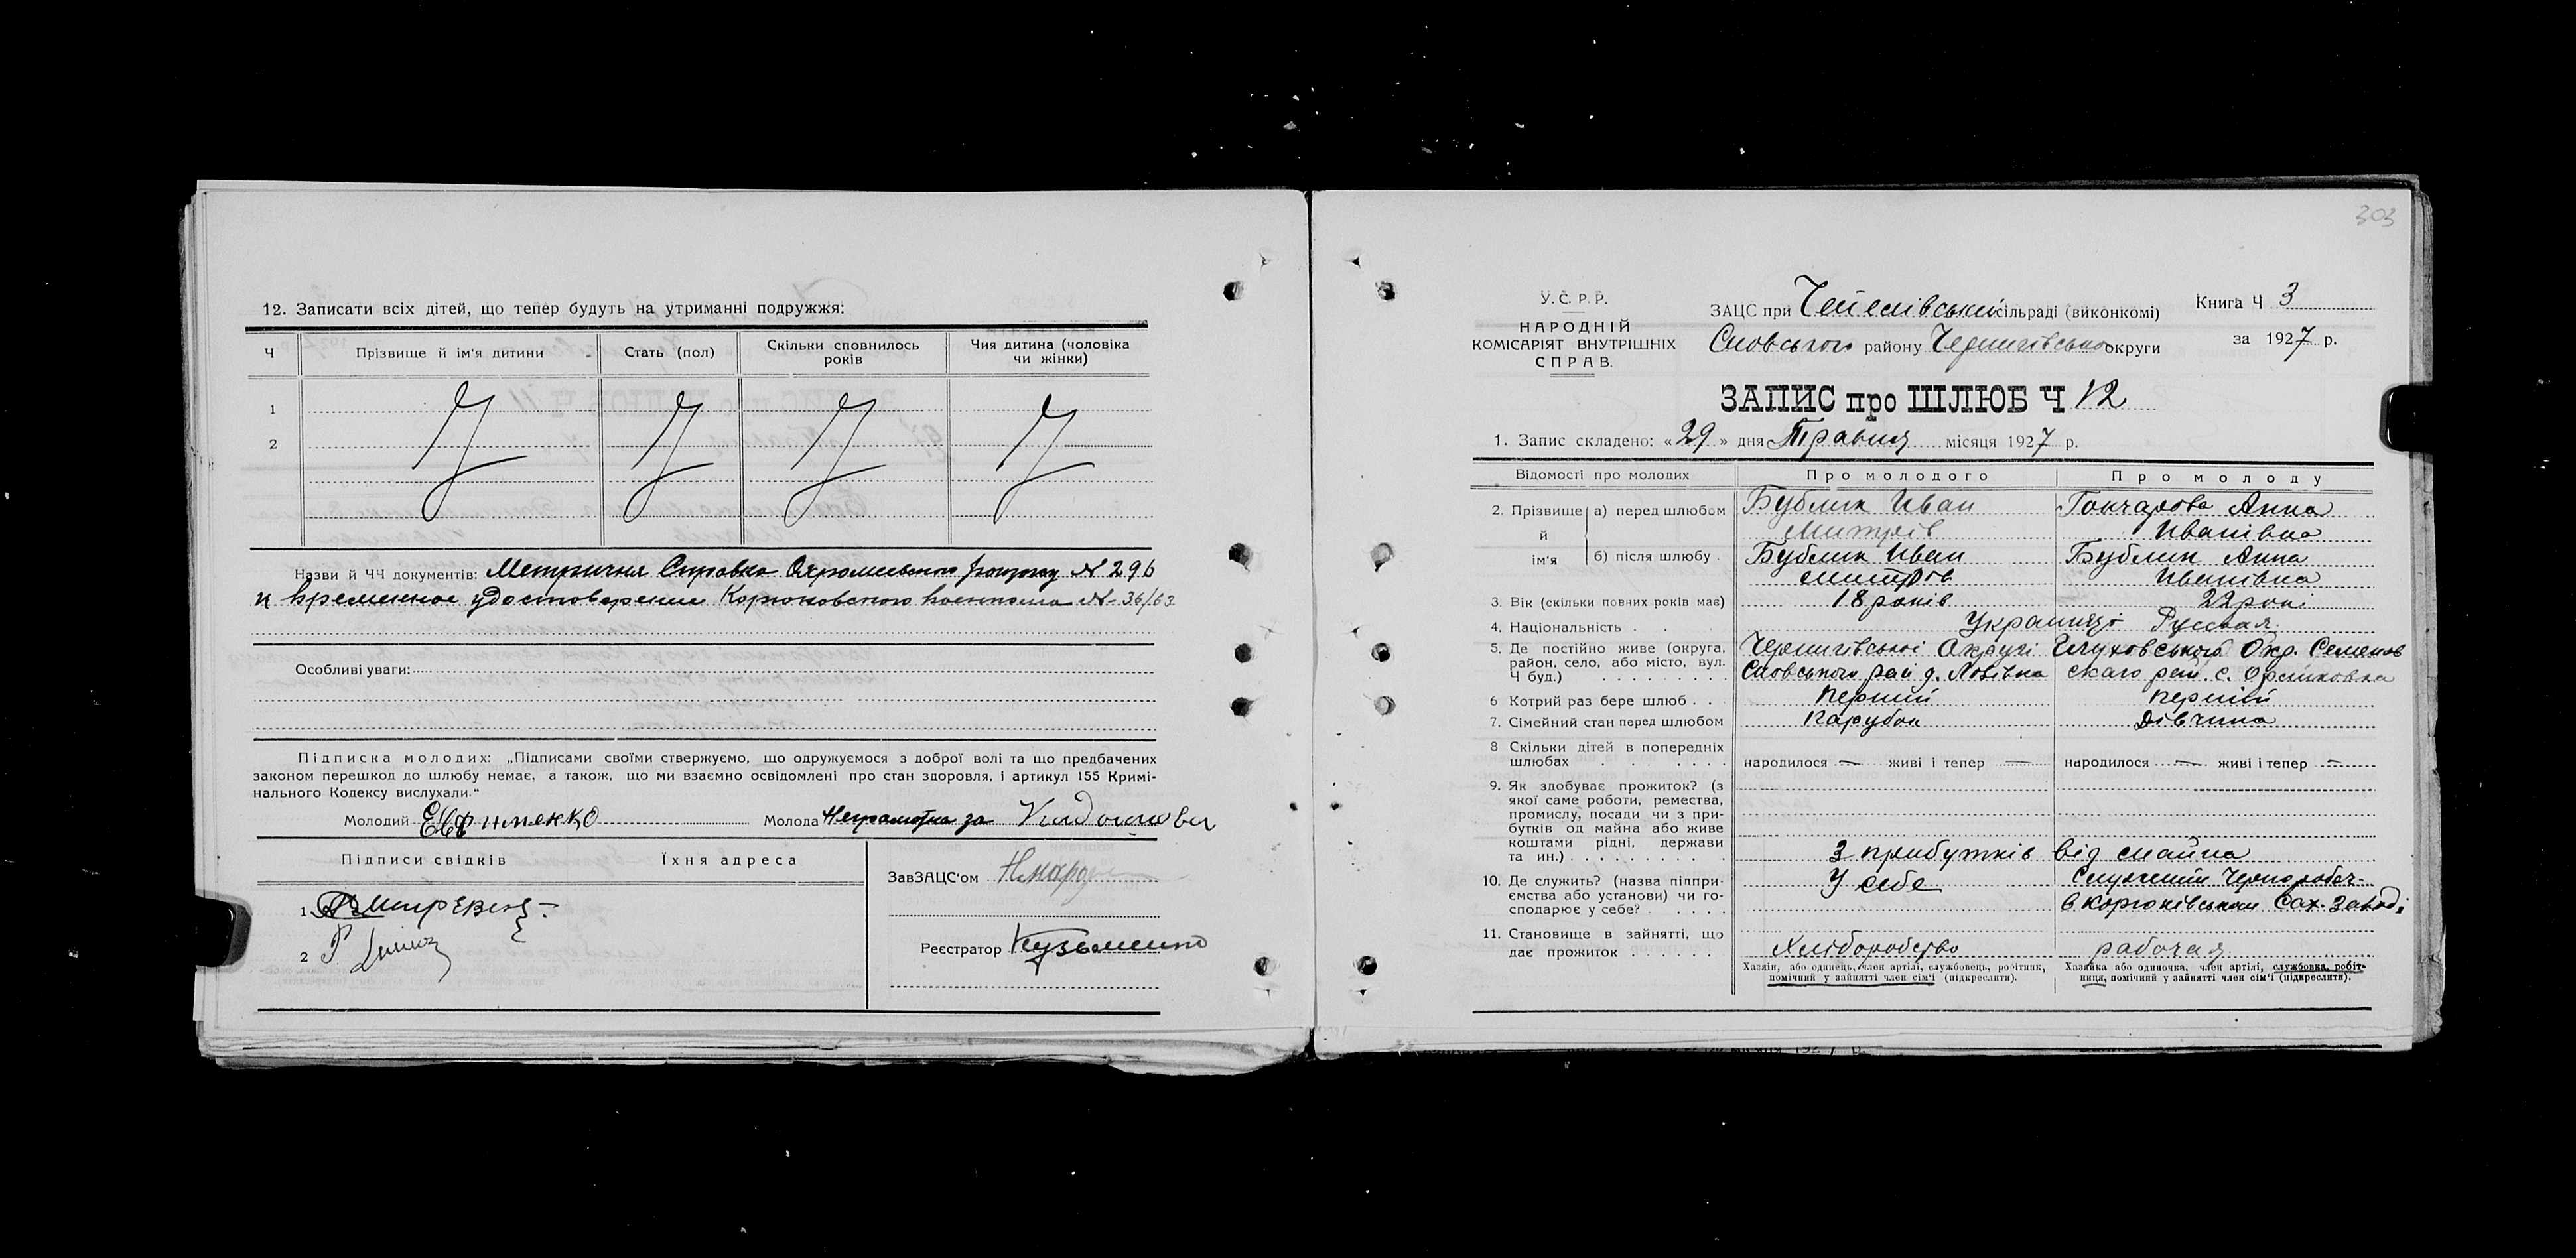 12. Записати всіх дітей, що тепер будуть на утриманні подружжя:
Ч Прізвище й ім'я дитини Стать (пол) Скільки сповнилось років Чия дитина (чоловіка чи жінки)
1
2
Назви й ЧЧ документів: Метрична Справка № 296
и временное удостоверение Корюковского Военкома № 36/63
Особливі уваги:
Підписка молодих: „Підписами своїми стверджуємо, що одружуємося з доброї волі та що предбачених
законом перешкод до шлюбу немає, а також, що ми взаємно освідомлені про стан здоровля, і артикул 155 Кримі-
нального Кодексу вислухали."
Молодий Евфименко Молода Неграмотна за
Підписи свідків Їхня адреса
ЗавЗАЦС'ом
1
2
Реєстратор Кузьменко
303
У. С. Р. Р.
НАРОДНІЙ
КОМІСАРІЯТ ВНУТРІШНІХ
СПРАВ.
ЗАЦС при сільраді (виконкомі)
Сновського району Чернигівської округи
Книга Ч 3
за 1927 р.
ЗАПИС про ШЛЮБ Ч 12
1. Запис складено: «29» дня Травня місяця 1927 р.
Відомості про молодих Про молодого Про молоду
2. Прізвище й ім'я а) перед шлюбом Бублик Иван Митрів Гончарова Анна Иванівна
б) після шлюбу Бублик Иван Митрів Бублик Анна Иванівна
3. Вік (скільки повних років має) 18 років 22 рокі
4. Національність Українці Русская
5. Де постійно живе (округа, район, село, або місто, вул. Ч буд.) Чернигівської Округі Сновського рай д. Глуховського Окр. Семенов
скаго рай. с.
6 Котрий раз бере шлюб Перший перший
7. Сімейний стан перед шлюбом Парубок Дівчина
8 Скільки дітей в попередніх шлюбах народилося — живі і тепер — народилося — живі і тепер —
9. Як здобуває прожиток? (з
якої саме роботи, ремества,
промислу, посади чи з при-
бутків од майна або живе
коштами рідні, держави
та ин.) З прибутків від майна
10. Де служить? (назва підпри-
ємства або установи) чи го-
сподарює у себе? У себе
в Корюківськом Сах. Заводі
11. Становище в зайнятті, що
дає прожиток Хліборобство рабочая
Хазяїн, або одинець, член артілі, службовець, робітник,
помічний у зайнятті член сім'ї (підкреслити).
Хазяйка або одиночка, член артілі, службовка, робіт-
ниця, помічний у зайнятті член сім'ї (підкреслити).